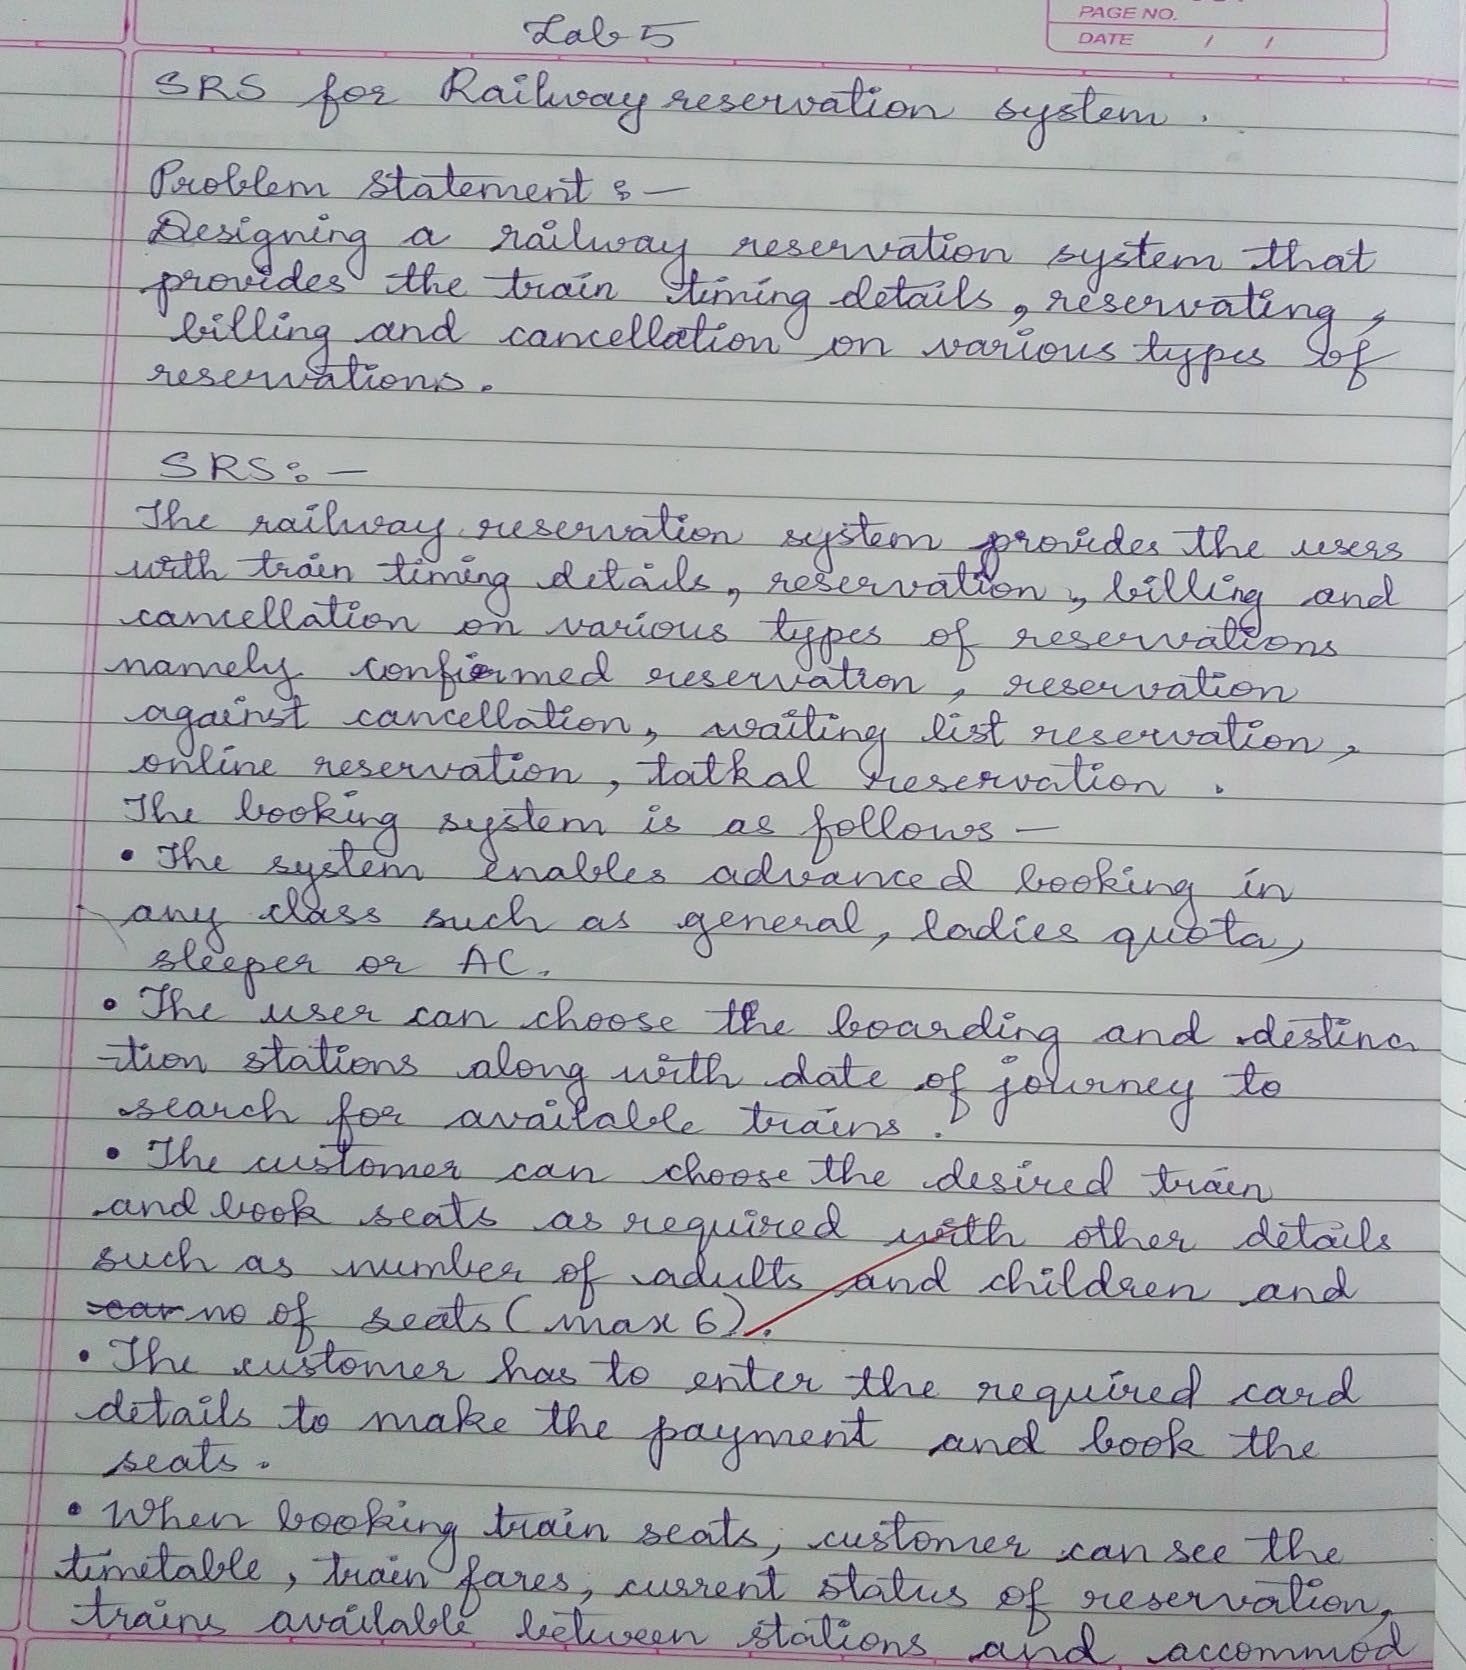 PAGE NO.
DATE / /
Lab 5
SRS for Railway reservation system.
Problem statement :-
Designing a railway reservation system that
provides the train timing details, reservating,
billing and cancellation on various types of
reservations.
SRS:-
The railway reservation system provides the users
with train timing details, reservation, billing and
cancellation on various types of reservations
namely confirmed reservation, reservation
against cancellation, waiting list reservation,
online reservation, tatkal reservation.
The booking system is as follows -
• The system enables advanced booking in
any class such as general, ladies quota,
sleeper or AC.
• The user can choose the boarding and destina
-tion stations along with date of journey to
search for available trains.
• The customer can choose the desired train
and book seats as required with other details
such as number of adults and children and
no of seats (max 6).
• The customer has to enter the required card
details to make the payment and book the
seats.
• When booking train seats, customer can see the
timetable, train fares, current status of reservation,
trains available between stations and accommod